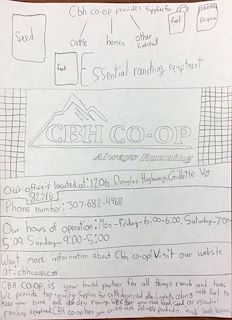 Cbh co-op provides supplies for
Fuel
Propane
Seed
cattle
horses
other livestock
Feed
Essential ranching equiptment
CBH CO-OP
Always Running
Our office is located at: 1206 Douglas Highway, Gillette Wy
82716
Phone number: 307-682-4468
Our hours of operation: Mon-Friday-6:00-6:00, Saturday-7:00-
5:00 Sunday-9:00-5:00
Want more information about Cbh co-op? Visit our website
at: cbhcoop.com
CBH CO-OP is your trusted partner for all things ranch and home.
We provide top quality supplies for cattle, horses and other livestock, along with fuel to
keep your home and vehicles running. Whether you need feed, seed or essential
ranching equiptment CBH co-op has you covered with reliable products and local